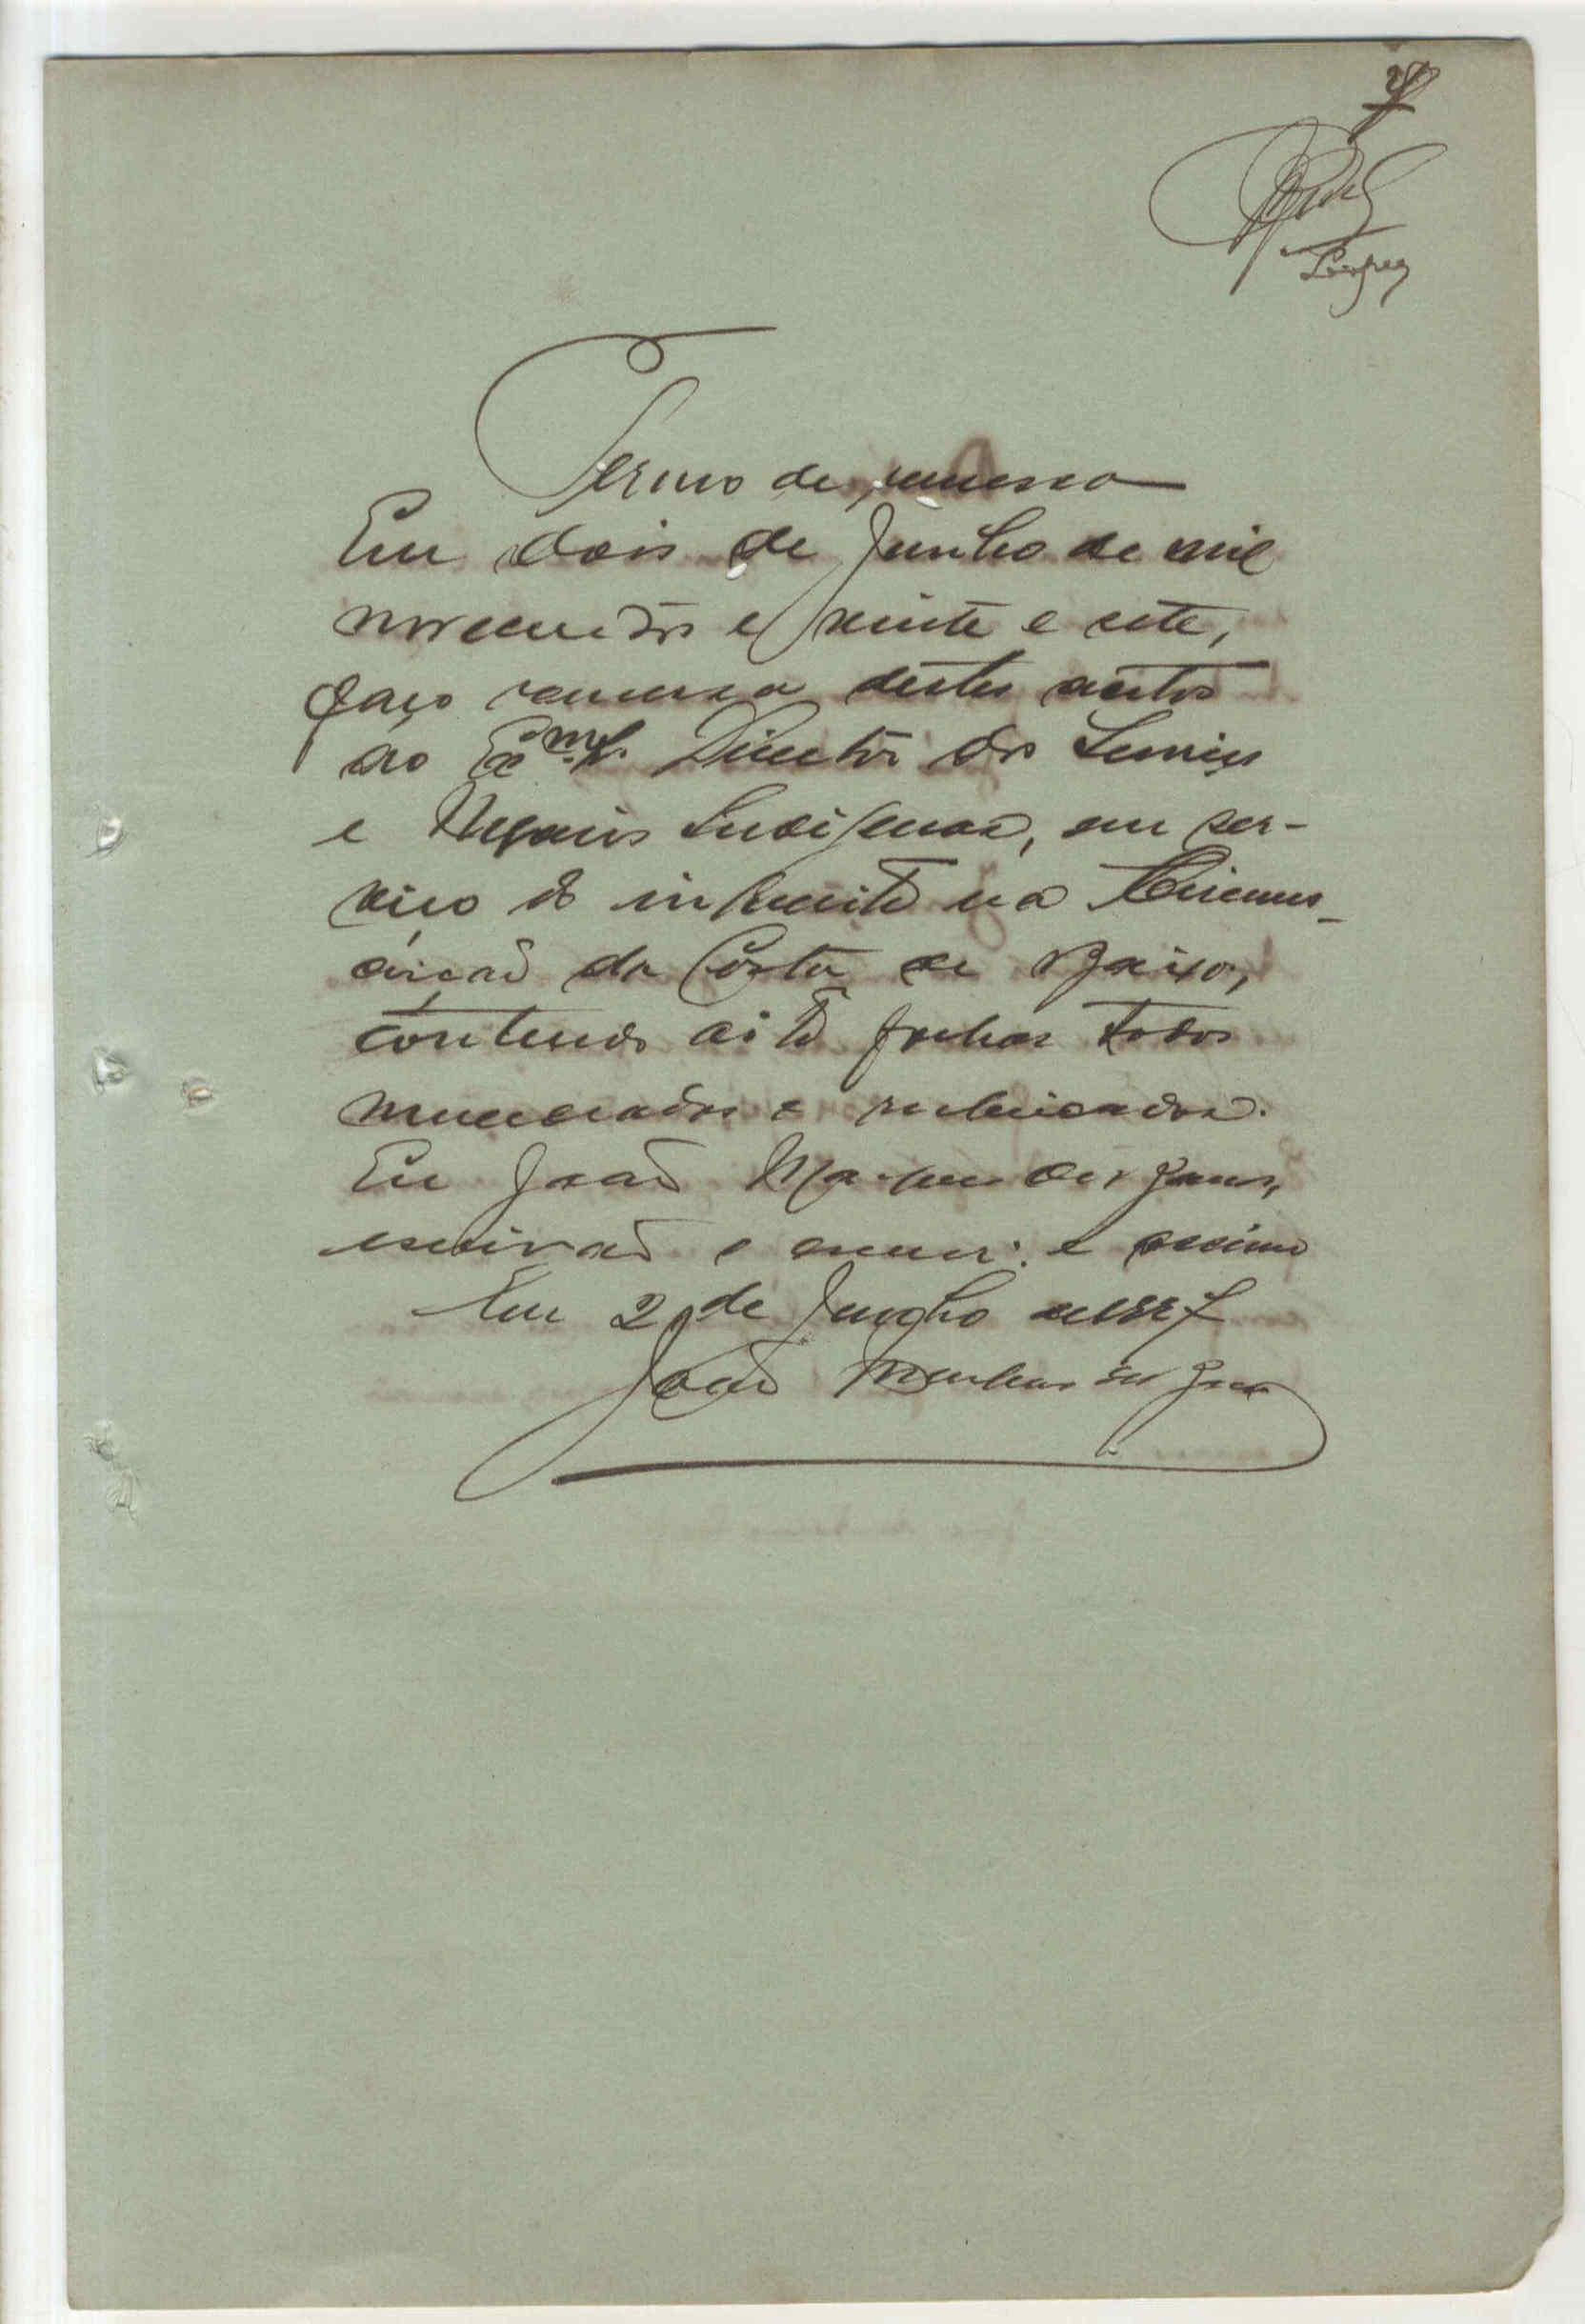 Lopes
Termo de remessa
Em dois de Junho de mil
novecentos e vinte e sete,
faço remessa destes autos
ao Exmo. Sr. Director dos Serviços
e Negocios Indigenas, em ser-
viço de inquerito na Circuns-
crição da Costa de Baixo,
contendo oito folhas todas
numeradas e rubricadas.
Eu João
escrivão o escrevi e assino
Em 2 de Junho de 1927
João